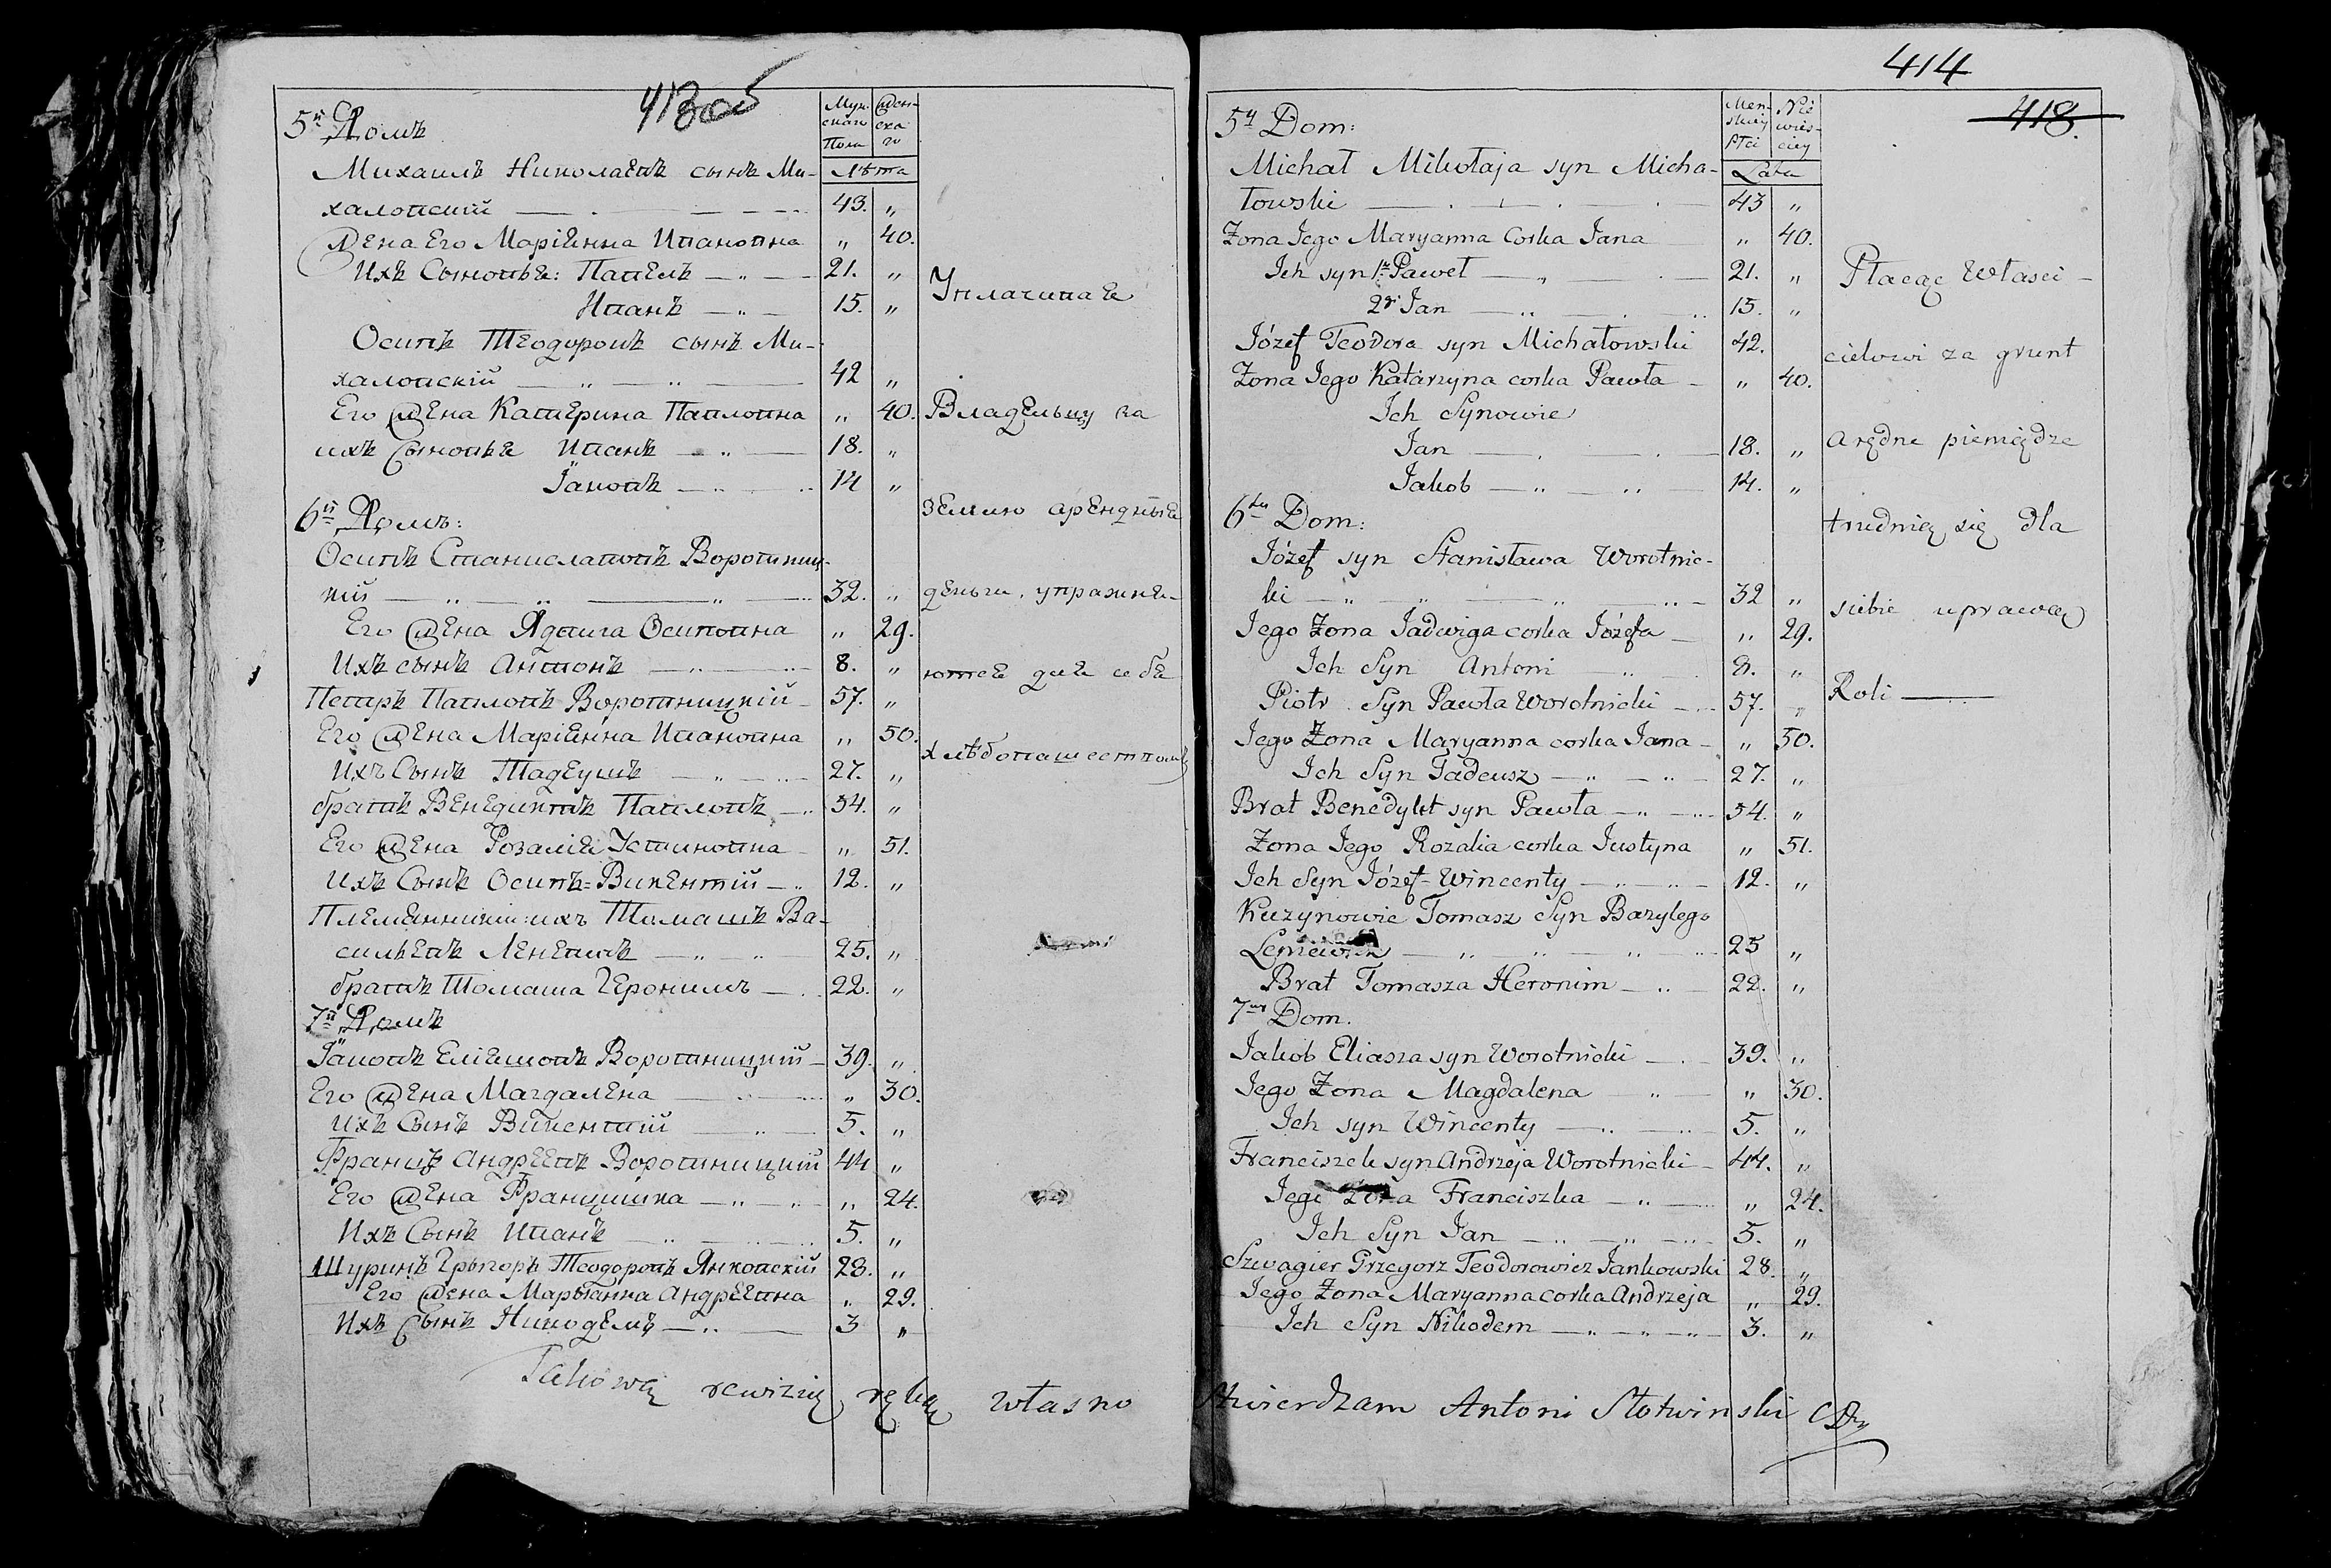 413 об
5й Домъ
Муж-
скаго
Пола
Жен-
ска
го
Лѣта
Михаилъ Николаевъ сынъ Ми-
халовскій 43. „
Жена Его Маріянна Ивановна „ 40.
Ихъ Сыновья: Павелъ 21. „
Иванъ 15. „
Осипъ Теодоровъ сынъ Ми-
халовскій 42 „
Его Жена Катерина Павловна „ 40.
ихъ Сыновья Иванъ 18. „
Яковъ 14 „
6й Домъ:
Осипъ Станиславовъ Воротниц-
кій 32. „
Его Жена Ядвига Осиповна „ 29.
Ихъ сынъ Антонъ 8. „
Петръ Павловъ Воротницкій 57. „
Его Жена Маріянна Ивановна „ 50.
Ихъ Сынъ Тадеушъ 27. „
братъ Венедиктъ Павловъ 54. „
Его Жена Розалія Устиновна „ 51.
Ихъ Сынъ Осипъ=Викентій 12. „
Племянники ихъ Томашъ Ва-
сильевъ 25. „
братъ Томаша Геронимъ 22. „
7й Домъ
Яковъ Еліяшовъ Воротницкій 39. „
Его Жена Магдалена „ 30.
Ихъ Сынъ Викентій 5. „
Францъ Андреевъ Воротницкій 44 „
Его Жена Францишка „ 24.
Ихъ Сынъ Иванъ 5. „
Шуринъ Грыгоръ Теодоровъ Янковскій 28. „
Его Жена Марыанна Андреевна „ 29.
Ихъ Сынъ Никодемъ 3 „
Уплачивая
Владельцу за
землю арендныя
деньги, упражня-
ются для себя
хлѣбопашествомъ
414
418.
5y Dom:
Men-
skiey
Płci
Nie
wies-
ciey
Lata
Michał Mikołaja syn Micha-
łowski 43 „
Zona Jego Maryanna Corka Jana „ 40.
Ich syn 1y Paweł 21. „
2gi Jan 15. „
Józef Teodora syn Michałowski 42.
Zona Jego Katarzyna corka Pawła „ 40.
Ich Synowie
Jan 18. „
Jakob 14. „
6ty Dom:
Józef syn Stanisława Worotnic-
ki 32 „
Jego Zona Jadwiga corka Józefa „ 29.
Ich Syn Antoni 8. „
Piotr Syn Pawła Worotnicki 57. „
Jego Zona Maryanna corka Jana „ 50.
Ich Syn Tadeusz 27. „
Brat Benedykt syn Pawła 54. „
Zona Jego Rozalia corka Justyna „ 51.
Ich Syn Józef=Wincenty 12. „
Kuzynowie Tomasz Syn Bazylego
Leniewicz 25 „
Brat Tomasza Heronim 22. „
7my Dom.
Jakób Eliasza syn Worotnicki 39. „
Jego Zona Magdalena „ 30.
Ich syn Wincenty 5. „
Franciszek syn Andrzeja Worotnicki 44. „
Jego Zona Franciszka „ 24.
Ich Syn Jan 5. „
Szwagier Grzegorz Teodorowicz Jankowski 28. „
Jego Zona Maryanna corka Andrzeja „ 29.
Ich Syn Nikodem 3. „
Płacąc Właści-
cielowi za grunt
arędne pieniędze
trudnią się dla
siebie uprawą
Roli
Takową rewizią ręką własno stwierdzam Antoni Słotwinski